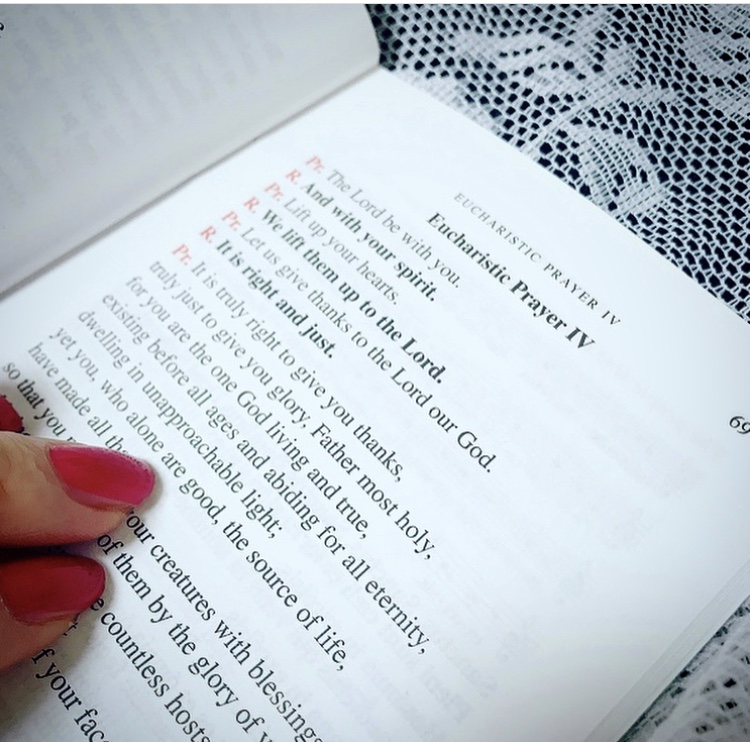 EUCHARISTIC PRAYER IV
69
Eucharistic Prayer IV
Pr. The Lord be with you.
R. And with your spirit.
Pr. Lift up your hearts.
R. We lift them up to the Lord.
Pr. Let us give thanks to the Lord our God.
R. It is right and just.
Pr. It is truly right to give you thanks,
truly just to give you glory, Father most holy,
for you are the one God living and true,
existing before all ages and abiding for all eternity,
dwelling in unapproachable light;
yet you, who alone are good, the source of life,
have made all
so that you
our creatures with blessings
of them by the glory of
countless hosts
your